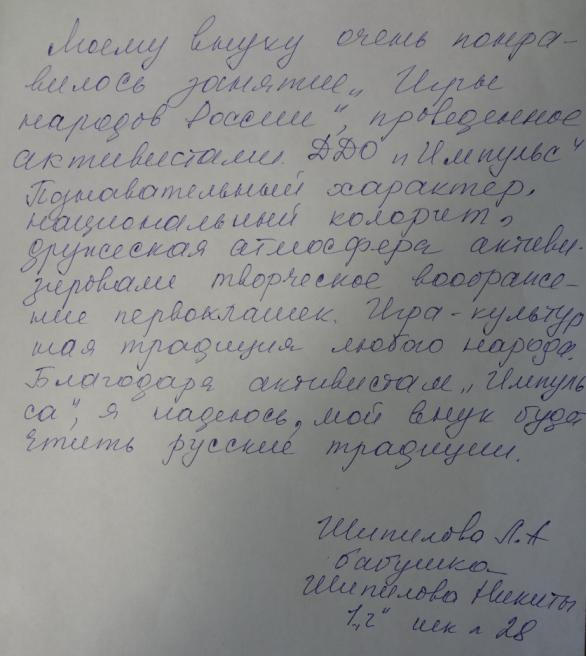 Моему внуку очень понра-
вилось занятие „Игры
народов России", проведенное
активистами ДДО „Импульс"
Познавательный характер,
национальный колорит,
дружеская атмосфера активи-
зировали творческое воображе-
ние первоклашек. Игра-культур
ная традиция любого народа.
Благодаря активистам „Импуль
са", я надеюсь, мой внук будет
чтить русские традиции.
Шипилова Л.А
бабушка
Шипилова Никиты
1„г" шк 28